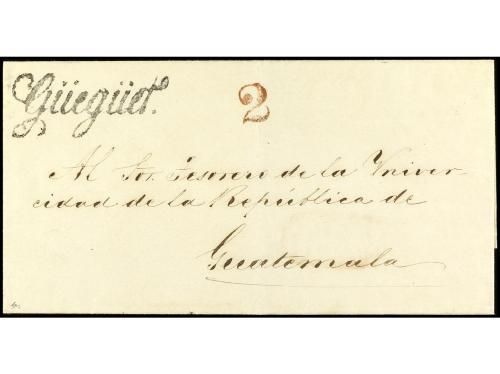 Güegüet.
2
Al Sor. Tesorero de la Univer-
cidad de la República de
Guatemala